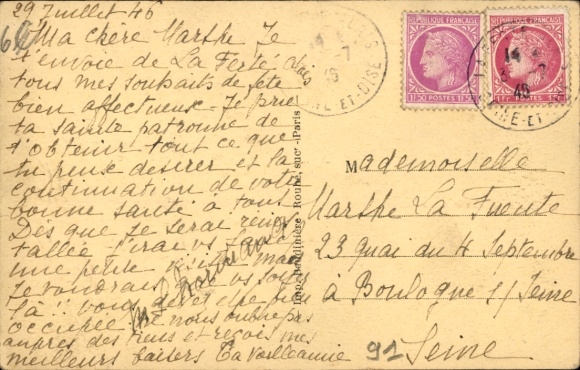 29 Juillet 46
Ma chère Marthe Je
t'envoie de La Ferté Alais
tous mes souhaits de fête
bien affectueux. Je prie
ta sainte patronne de
t'obtenir tout ce que
tu peux désirer et la
continuation de votre
bonne santé à tous
Dès que je serai réins
tallée j'irai vs faire
une petite visite mais
je voudrais vs
là !! vous devez être bien
occupée. Ne nous oublie pas
auprès des tiens et reçois mes
meilleurs baisers Ta vieille amie
Mademoiselle
Marthe La Fuente
23 Quai du 4 Septembre
à Boulogne s/ Seine
Seine
92
64
RÉPUBLIQUE FRANÇAISE
1F.50 POSTES 1F.50
RÉPUBLIQUE FRANÇAISE
SEINE-ET-OISE
14
46
SEINE-ET-OISE
sucr - Paris